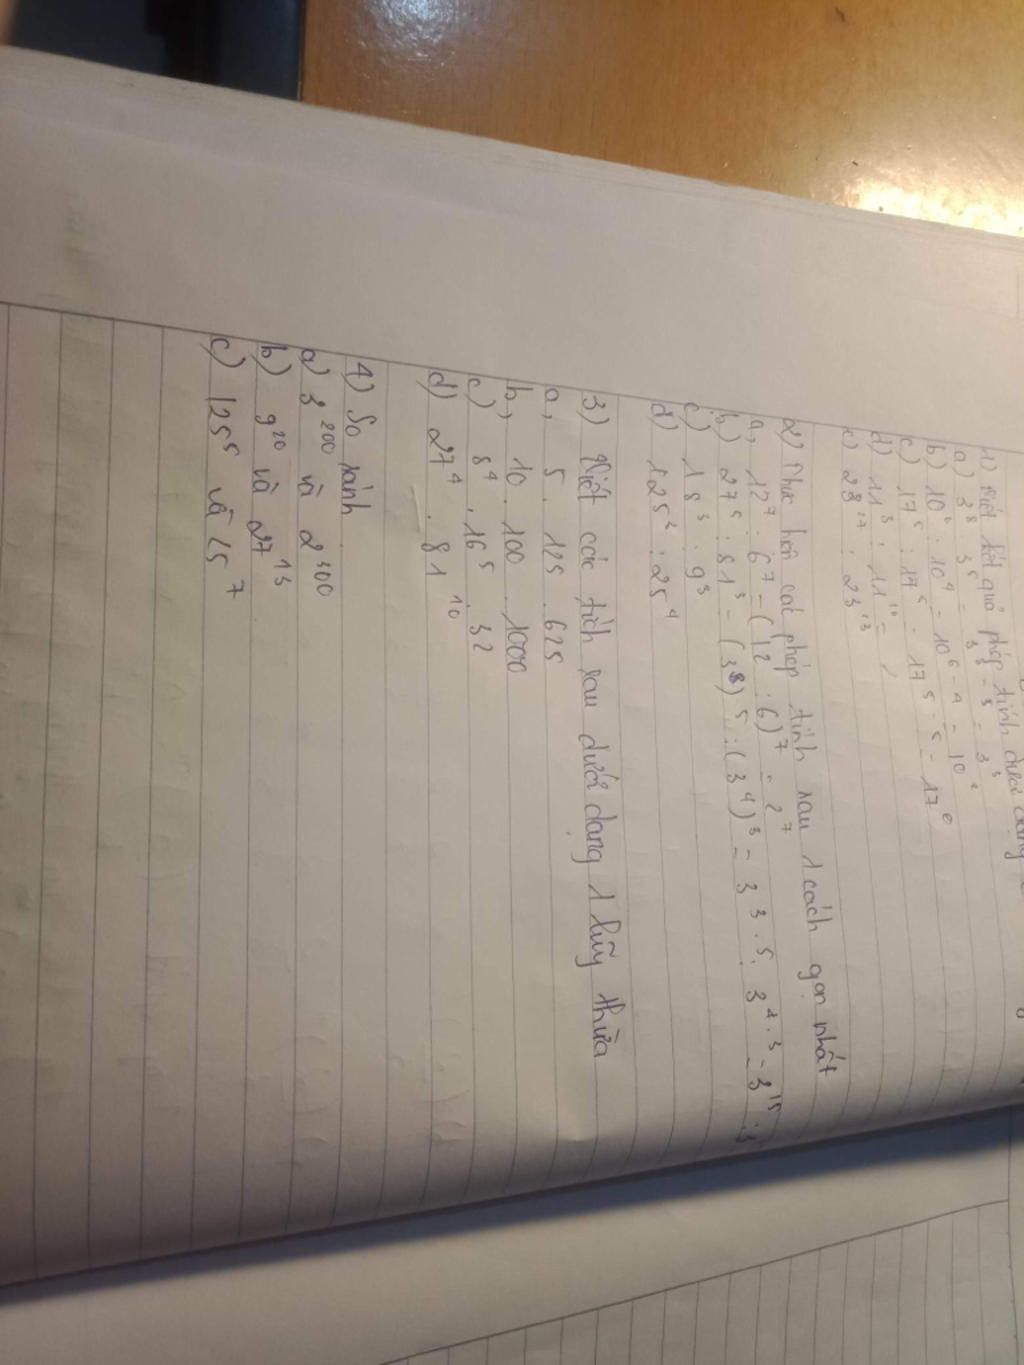 1) Viết kết quả phép tính dưới dạng
a) 3⁸ : 3⁵ = 3⁸⁻⁵ = 3³
b) 10⁶ : 10⁴ = 10⁶⁻⁴ = 10²
c) 17⁵ : 17⁵ = 17⁵⁻⁵ = 17⁰
d) 11³ : 11¹⁰ =
e) 23¹⁷ : 23¹³
2) Thực hiện các phép tính sau 1 cách gọn nhất
a, 12⁷ : 6⁷ = (12 : 6)⁷ = 2⁷
b) 27⁵ : 81³ = (3³)⁵ : (3⁴)³ = 3³·⁵ : 3⁴·³ = 3¹⁵ : 3
c) 18³ : 9³
d) 125² : 25⁴
3) Viết các tích sau dưới dạng 1 lũy thừa
a, 5 . 125 . 625
b, 10 . 100 . 1000
c) 8⁴ . 16⁵ . 32
d) 27⁴ . 81¹⁰
4) So sánh
a) 3²⁰⁰ và 2³⁰⁰
b) 9²⁰ và 27¹³
c) 125⁵ và 25⁷